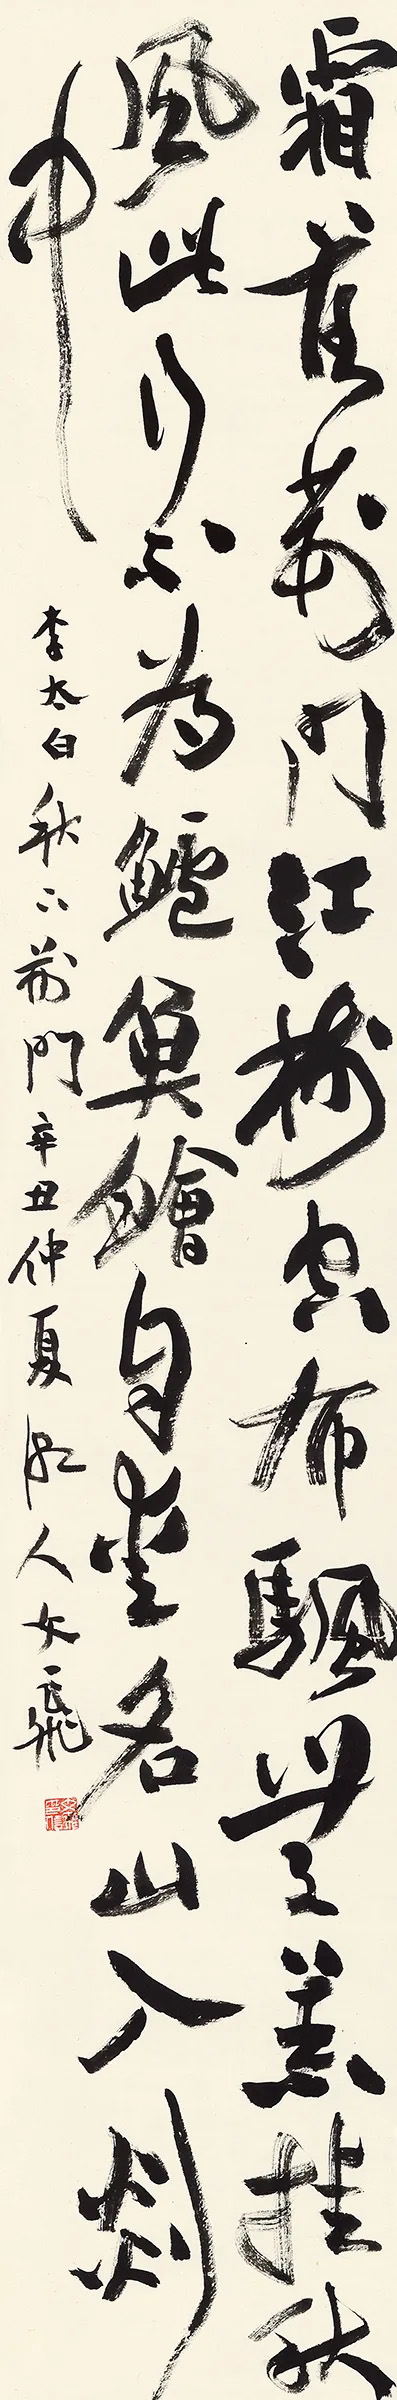 霜落荊門江樹空布颿無恙挂秋
風此行不為鱸魚鱠自愛名山入剡
中
李太白秋下荊門辛丑仲夏 人 飛